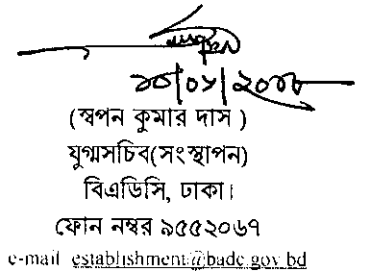 (স্বপন কুমার দাস )
যুগ্মসচিব(সংস্থাপন)
বিএডিসি, ঢাকা।
ফোন নম্বর ৯৫৫২০৬৭
e-mail establishment@badc.gov.bd